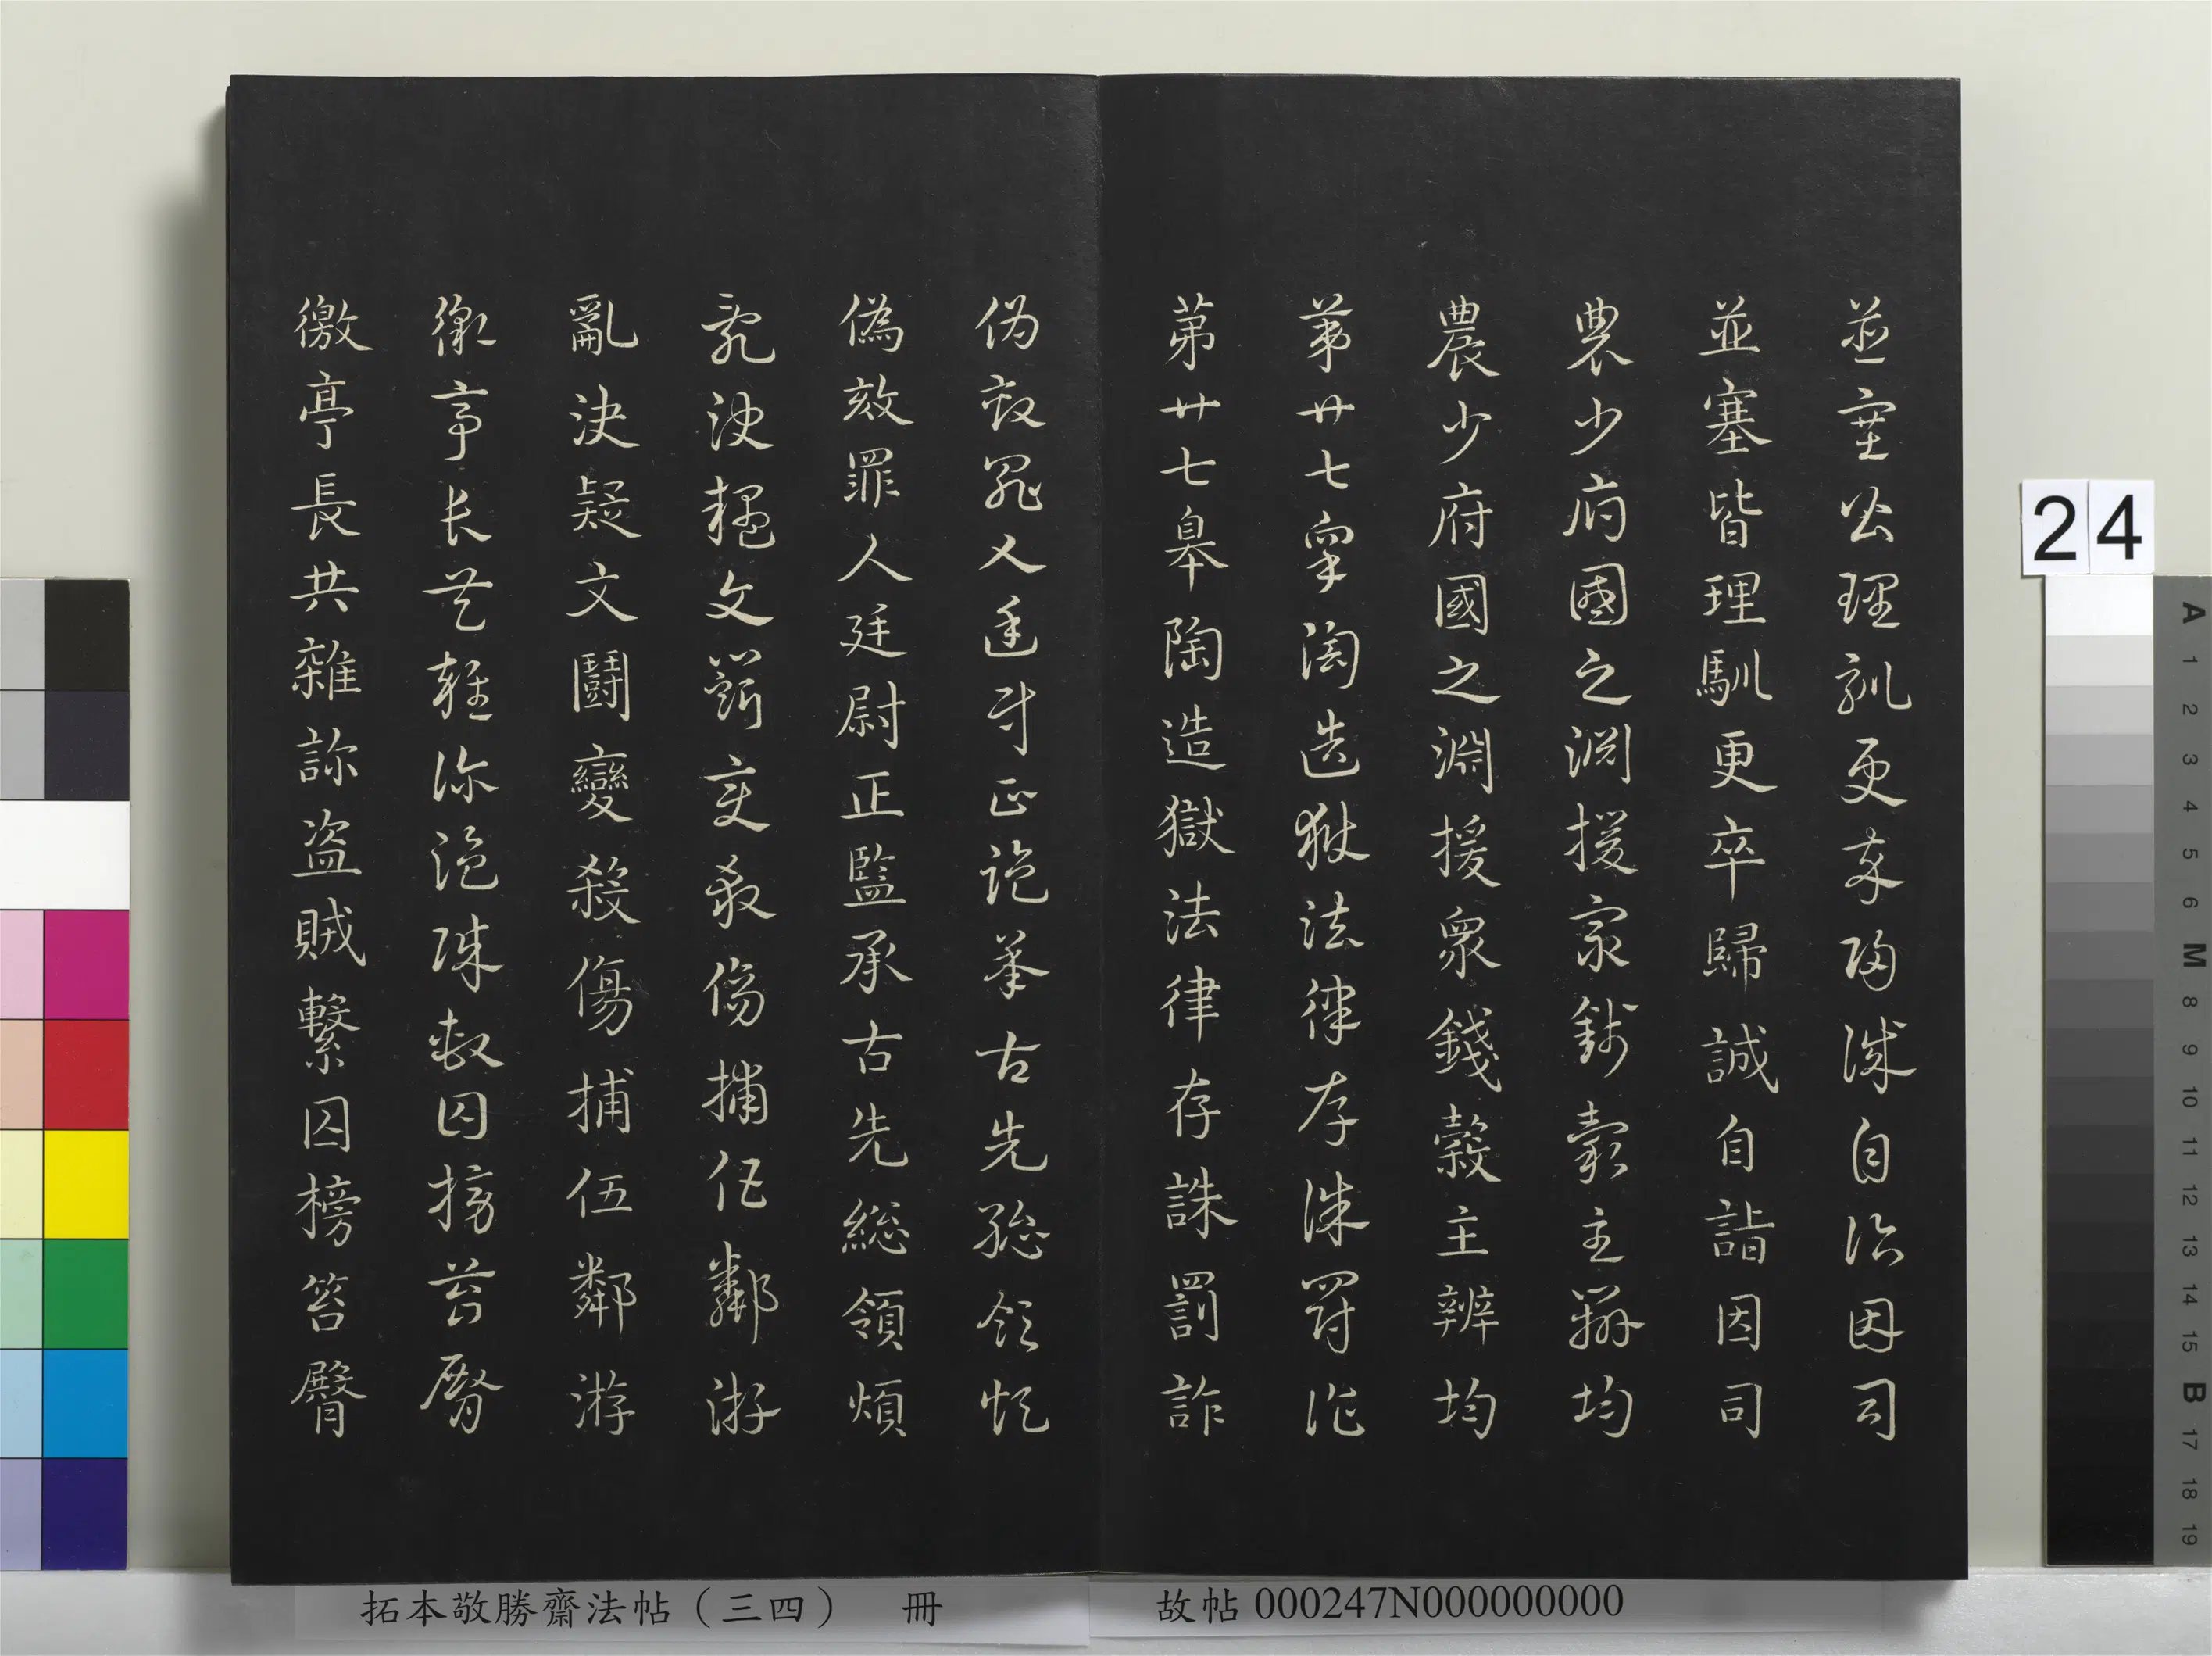 並塞皆理馴更卒歸誠自詣因司
並塞皆理馴更卒歸誠自詣因司
農少府國之淵援眾錢穀主辨均
農少府國之淵援眾錢穀主辨均
第廿七皋陶造獄法律存誅罰詐
第廿七皋陶造獄法律存誅罰詐
偽效罪人廷尉正監承古先總領煩
偽效罪人廷尉正監承古先総領煩
亂決疑文鬪變殺傷捕伍鄰游
亂決疑文鬪變殺傷捕伍鄰游
徼亭長共雜診盜賊繫囚榜笞臀
徼亭長共雜診盜賊繫囚榜笞臀
拓本敬勝齋法帖（三四） 冊
故帖 000247N000000000
24
A 1 2 3 4 5 6 M 8 9 10 11 12 13 14 15 B 17 18 19